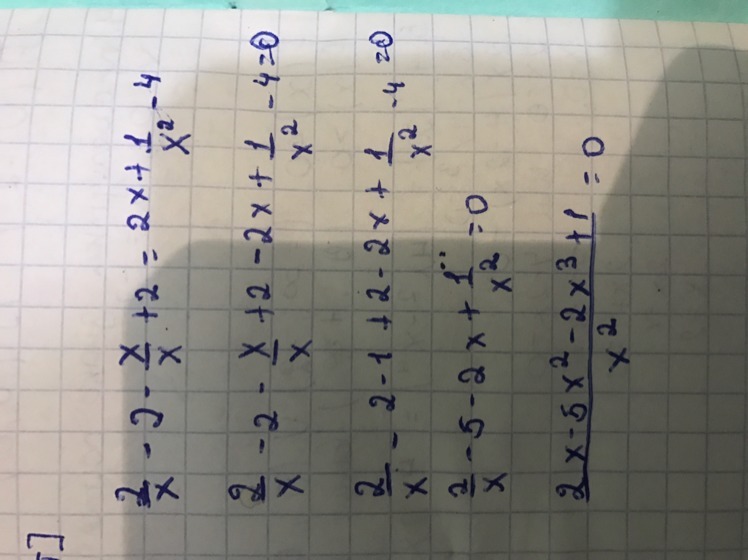 5]
2/x - 2 - x/x + 2 = 2x + 1/x² - 4
2/x - 2 - x/x + 2 - 2x + 1/x² - 4 = 0
2/x - 2 - 1 + 2 - 2x + 1/x² - 4 = 0
2/x - 5 - 2x + 1/x² = 0
(2x - 5x² - 2x³ + 1)/x² = 0